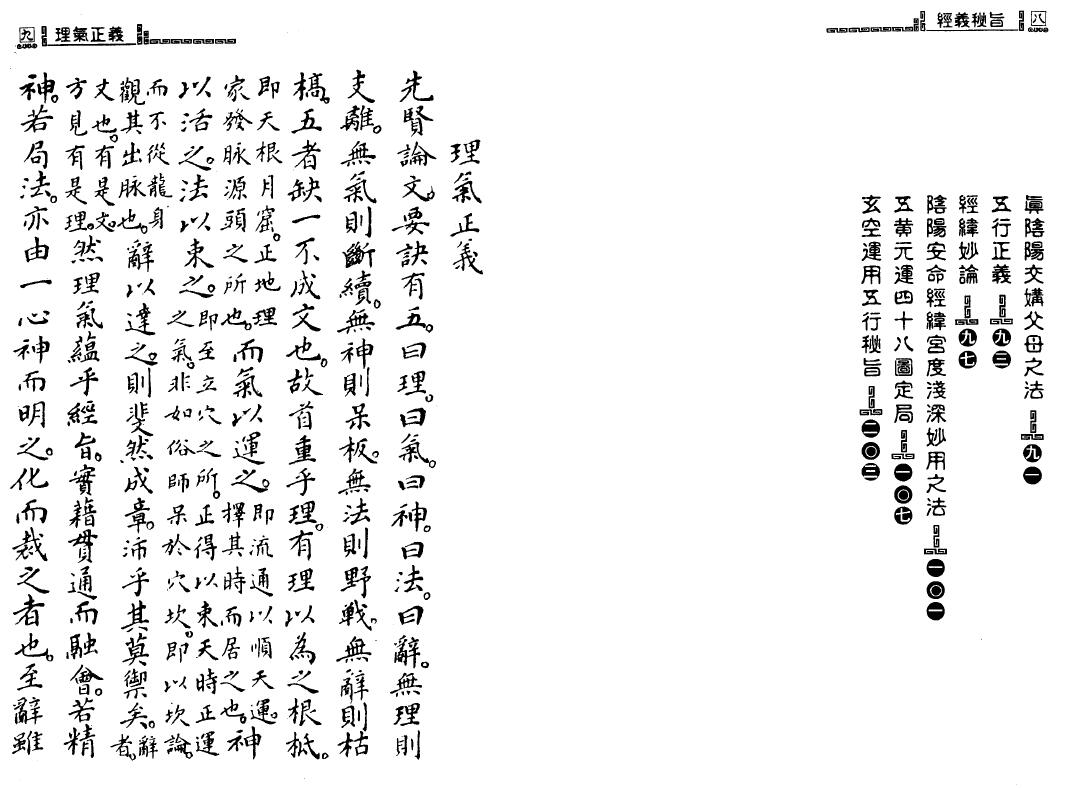 八 經義秘旨
眞陰陽交媾父母之法 九一
五行正義 九三
經緯妙論 九七
陰陽安命經緯宮度淺深妙用之法 一〇一
五黃元運四十八圖定局 一〇七
玄空運用五行秘旨 二〇三
理氣正義 九
理氣正義
先賢論文。要訣有五。曰理。曰氣。曰神。曰法。曰辭。無理則
支離。無氣則斷續。無神則呆板。無法則野戰。無辭則枯
槁。五者缺一不成文也。故首重乎理。有理以為之根柢。
即天根月窟。正地理家發脈源頭之所也。而氣以運之。即流通以順天運。擇其時而居之也。神
以活之。法以束之。即至立穴之所。正得以束天時正運之氣。非如俗師呆於穴坎。即以坎論。
而不從龍身觀其出脈也。辭以達之。則斐然成章。沛乎其莫禦矣。辭者。
文也。有是文。方見有是理。然理氣蘊乎經旨。實藉貫通而融會。若精
神。若局法。亦由一心神而明之。化而裁之者也。至辭雖